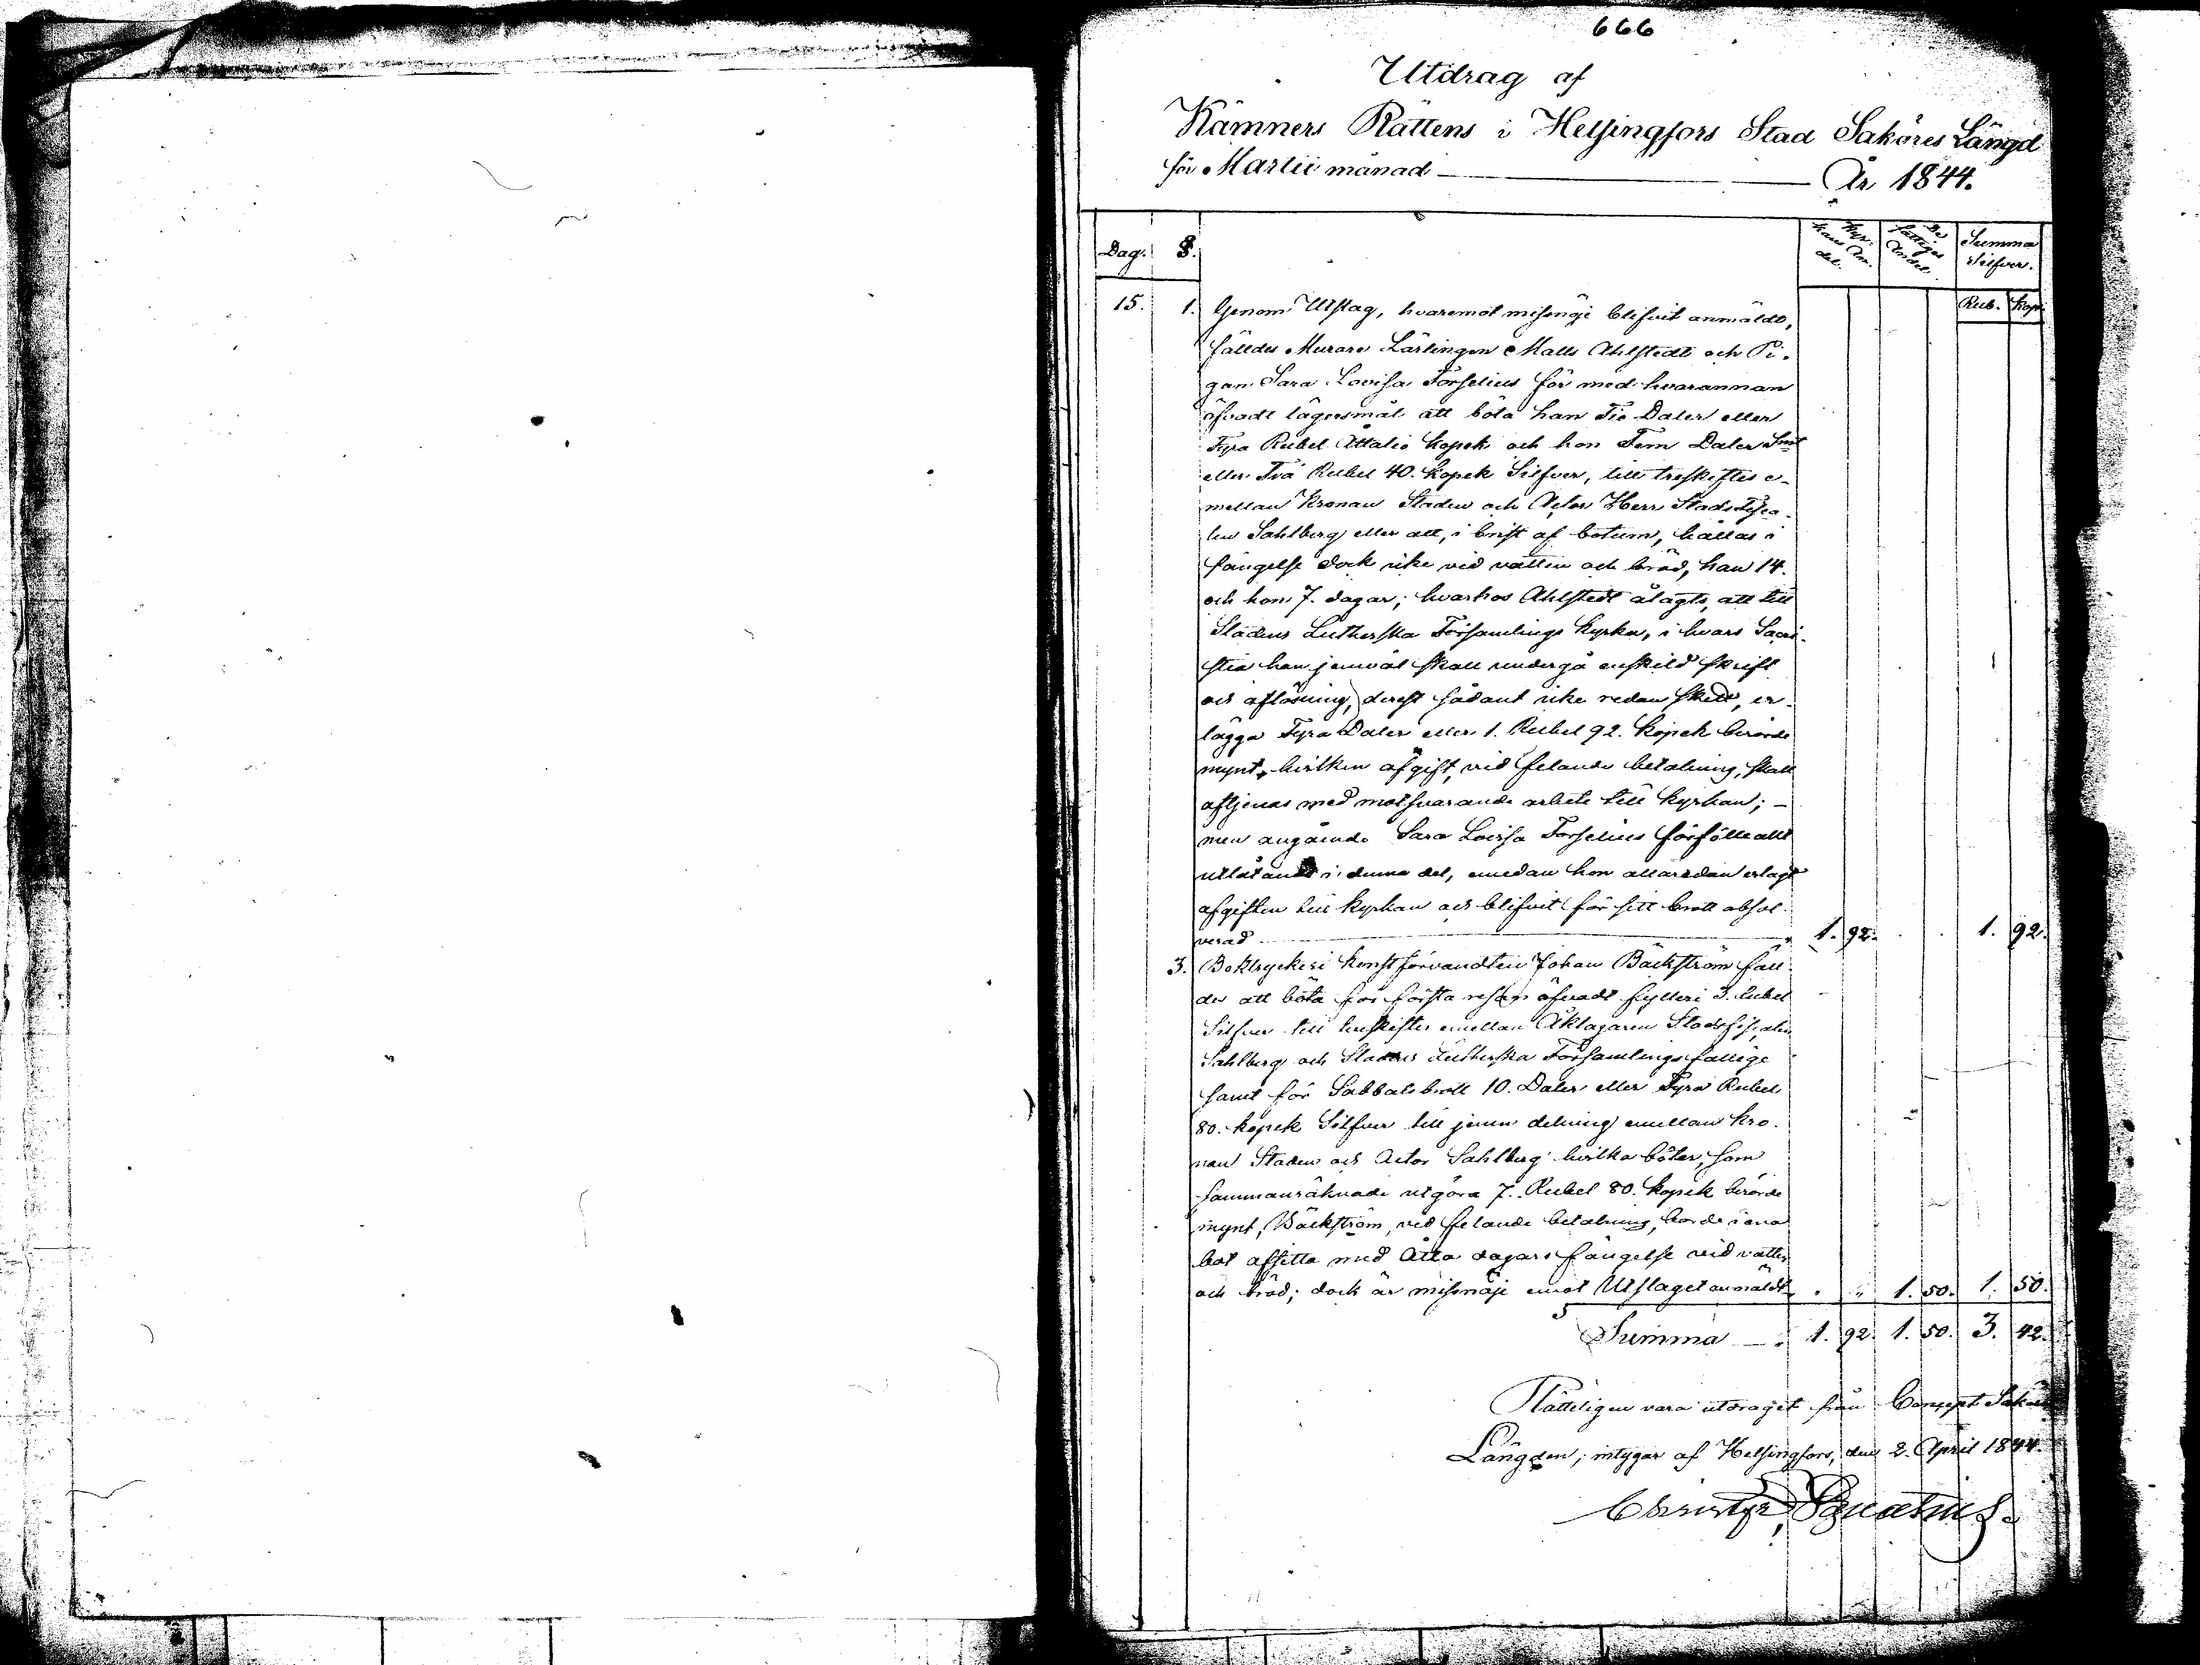 666
Utdrag af
Kämners Rättens i Helsingfors Stad Saköres Längd
för Martii månad — År 1844.
Dag. §. Kyrkans Andel. De fattiges Andel. Summa Silfver.
Rub. Kop.
15. 1. Genom Utslag, hvaremot missnöje blifvit anmäldt,
fälldes Murare Lärlingen Matts Ahlstedt och Pi-
gan Sara Lovisa Forselius för med hvarannan
öfvadt lägersmål att böta han Tio Daler eller
Fyra Rubel Åttatio kopek och hon Fem Daler Smt
eller Två Rubel 40. kopek Silfver, till treskiftes e-
mellan Kronan Staden och Actor Herr Stadsfisca-
len Sahlberg eller att, i brist af botum, hållas i
fängelse dock icke vid vatten och bröd, han 14.
och hon 7. dagar; hvarhos Ahlstedt ålagts, att till
Stadens Lutherska Församlings kyrka, i hvars Sacri-
stia han jemväl skall undergå enskild skrift
och aflösning, derest sådant icke redan skedt, er-
lägga Fyra Daler eller 1. Rubel 92. kopek berörde
mynt, hvilken afgift, vid felande betalning, skall
aftjenas med motsvarande arbete till kyrkan; —
men angående Sara Lovisa Forselius förfölle allt
utlåtande i denna del, emedan hon allaredan erlagt
afgiften till kyrkan och blifvit för sitt brott absol-
verad — 1. 92. 1. 92.
3. Boktryckeri konstförvandten Johan Bäckström fäll-
des att böta för första resan öfvadt fylleri 3. Rubel
Silfver till tveskiftes emellan Åklagaren Stadsfiscalen
Sahlberg och Stadens Lutherska Församlings fattige
samt för Sabbatsbrott 10. Daler eller Fyra Rubel
80. kopek Silfver till jemn delning emellan Kro-
nan Staden och Actor Sahlberg hvilka böter, som
sammanräknade utgöra 7. Rubel 80. kopek berörde
mynt, Bäckström, vid felande betalning, borde i ena
bot afsitta med Åtta dagars fängelse vid vatten
och bröd; dock är missnöje emot Utslaget anmäldt 1. 50. 1. 50.
Summa — 1. 92. 1. 50. 3. 42.
Rätteligen vara utdraget från Concept Saköres
Längden; intygar af Helsingfors, den 2. April 1844.
Christfr. Ignatius.